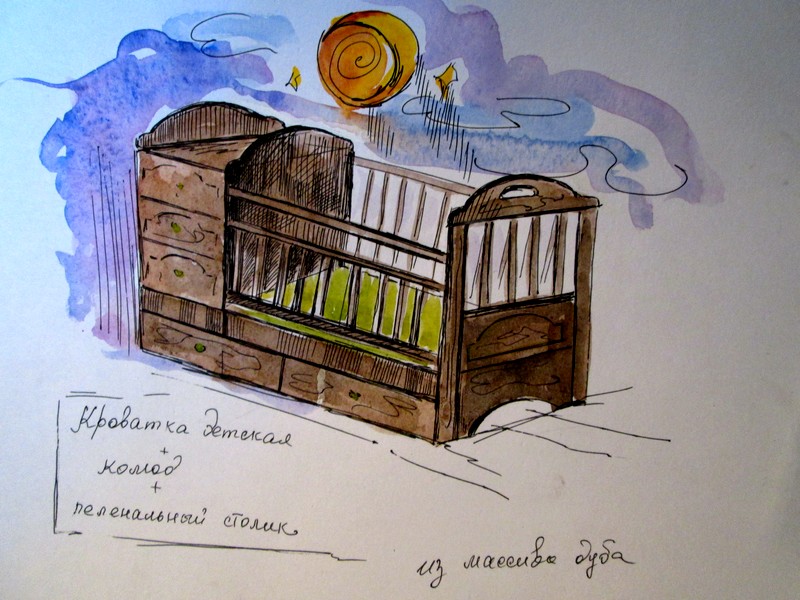 Кроватка детская
+
комод
+
пеленальный столик
из массива дуба